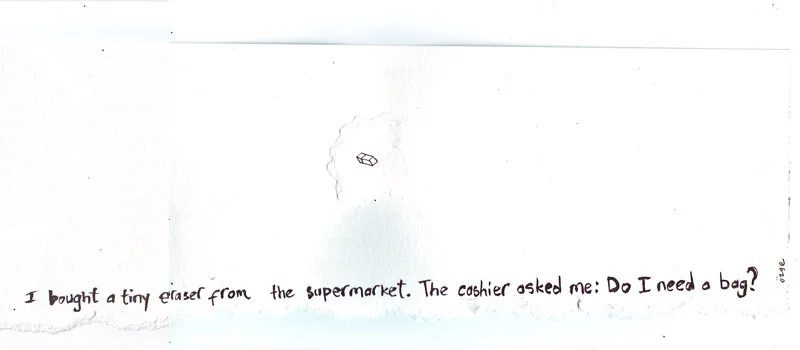 I bought a tiny eraser from the supermarket. The cashier asked me: Do I need a bag?